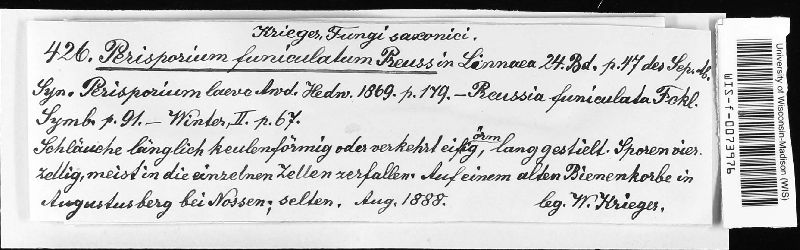 Krieger, Fungi saxonici.
426. Perisporium funiculatum Preuss in Linnaea 24. Bd. p. 47 des Sep.-Ab.
Syn. Perisporium laeve Awd. Hedw. 1869. p. 179. — Preussia funiculata Fckl.
Symb. p. 91. — Winter, II. p. 67.
Schläuche länglich keulenförmig oder verkehrt eiförmig, lang gestielt. Sporen vier-
zellig, meist in die einzelnen Zellen zerfallen. Auf einem alten Bienenkorbe in
Augustusberg bei Nossen; selten. Aug. 1888. leg. W. Krieger.
University of Wisconsin-Madison (WIS)
WIS-f-0073976